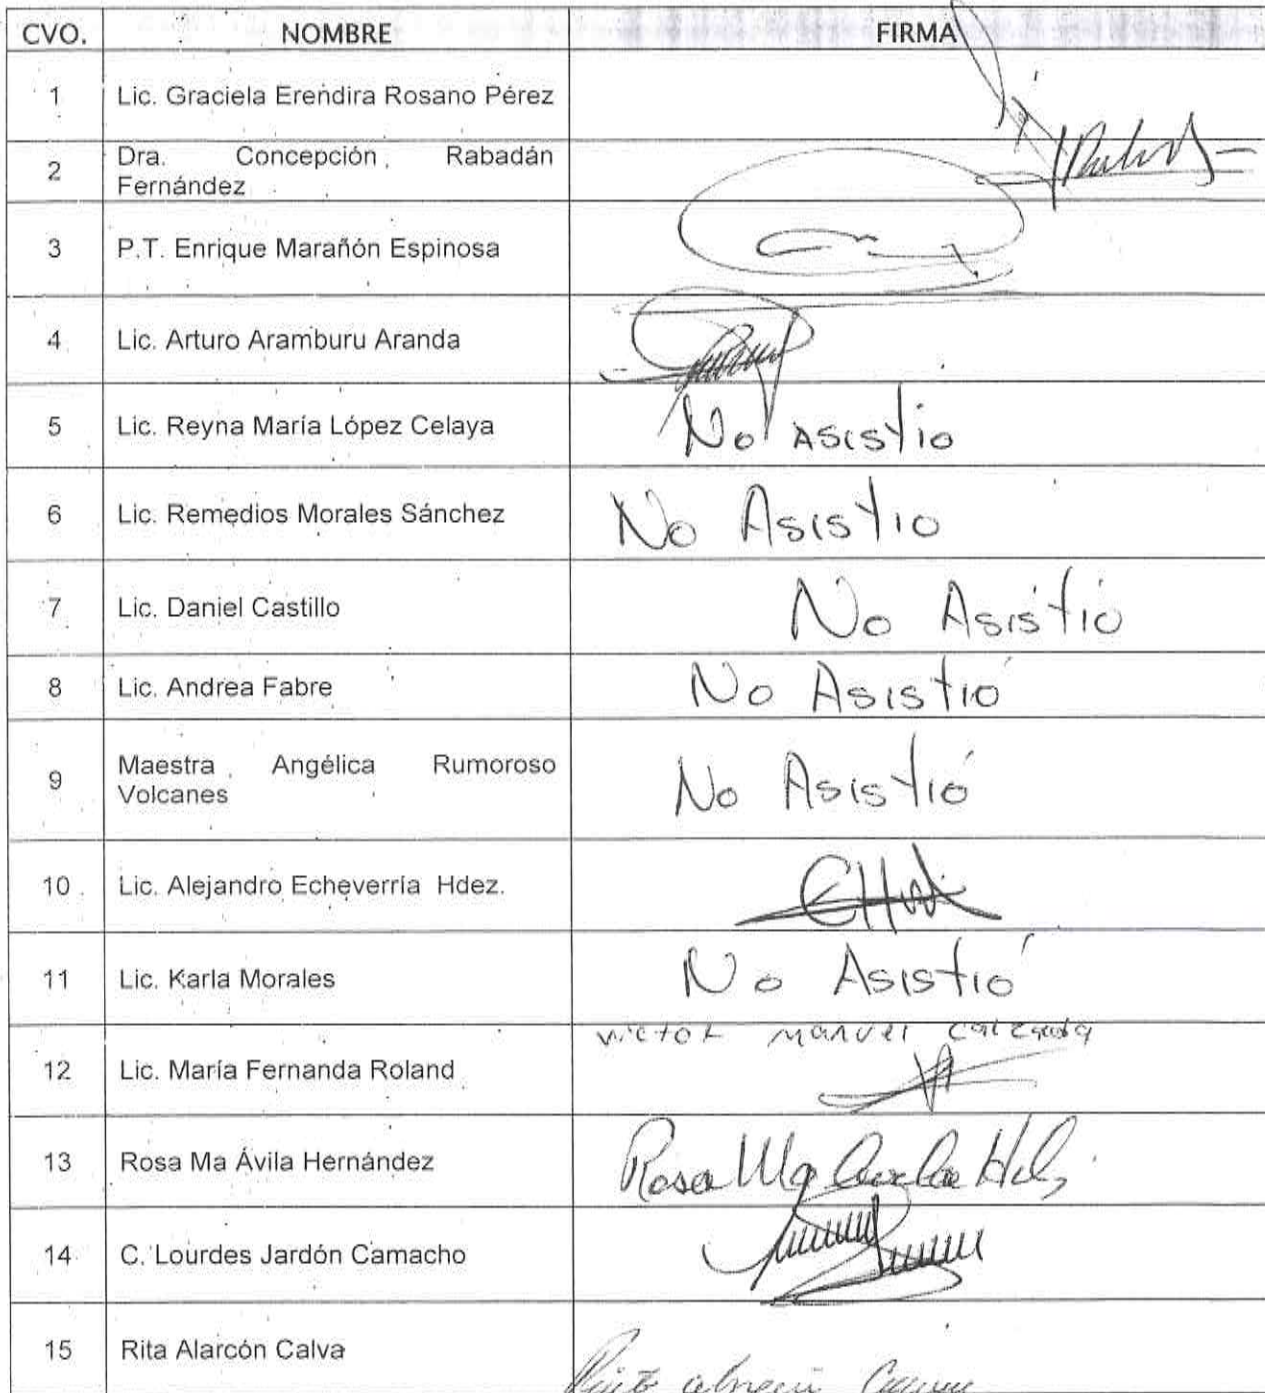 CVO. NOMBRE FIRMA
1 Lic. Graciela Erendira Rosano Pérez
2 Dra. Concepción Rabadán
Fernández
3 P.T. Enrique Marañón Espinosa
4 Lic. Arturo Aramburu Aranda
5 Lic. Reyna María López Celaya No Asistio
6 Lic. Remedios Morales Sánchez No Asistio
7 Lic. Daniel Castillo No Asistió
8 Lic. Andrea Fabre No Asistió
9 Maestra Angélica Rumoroso
Volcanes No Asistió
10 Lic. Alejandro Echeverría Hdez.
11 Lic. Karla Morales No Asistió
victor manuel calzada
12 Lic. María Fernanda Roland
13 Rosa Ma Ávila Hernández Rosa Ma
14 C. Lourdes Jardón Camacho
15 Rita Alarcón Calva